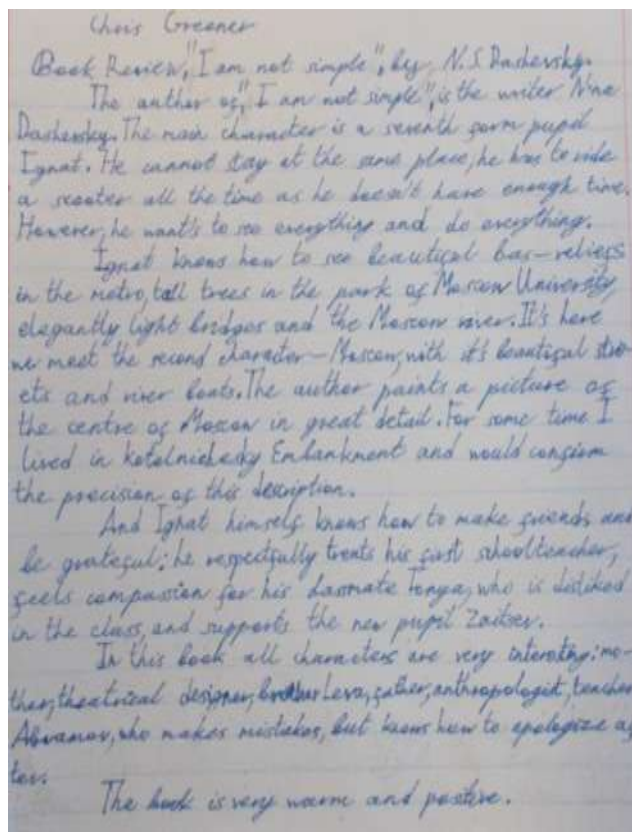 Chris Greener
Book Review, "I am not simple", by N.S. Dashevsky.
The author of "I am not simple", is the writer Nina
Dashevsky. The main character is a seventh form pupil
Ignat. He cannot stay at the same place, he has to ride
a scooter all the time as he doesn't have enough time.
However, he want's to see everything and do everything.
Ignat knows how to see beautiful bas-reliefs
in the metro, tall trees in the park of Moscow University,
elegantly light bridges and the Moscow river. It's here
we meet the second character - Moscow, with it's beautiful stre-
ets and river boats. The author paints a picture of
the centre of Moscow in great detail. For some time I
lived in Kotelnichesky Embankment and would confirm
the precision of this description.
And Ignat himself knows how to make friends and
be grateful: he respectfully treats his first schoolteacher,
feels compassion for his classmate Tonya, who is disliked
in the class, and supports the new pupil Zaitsev.
In this book all characters are very interesting: mo-
ther, theatrical designer, brother Leva, father, anthropologist, teacher
Abramov, who makes mistakes, but knows how to apologize af-
ter.
The book is very warm and positive.